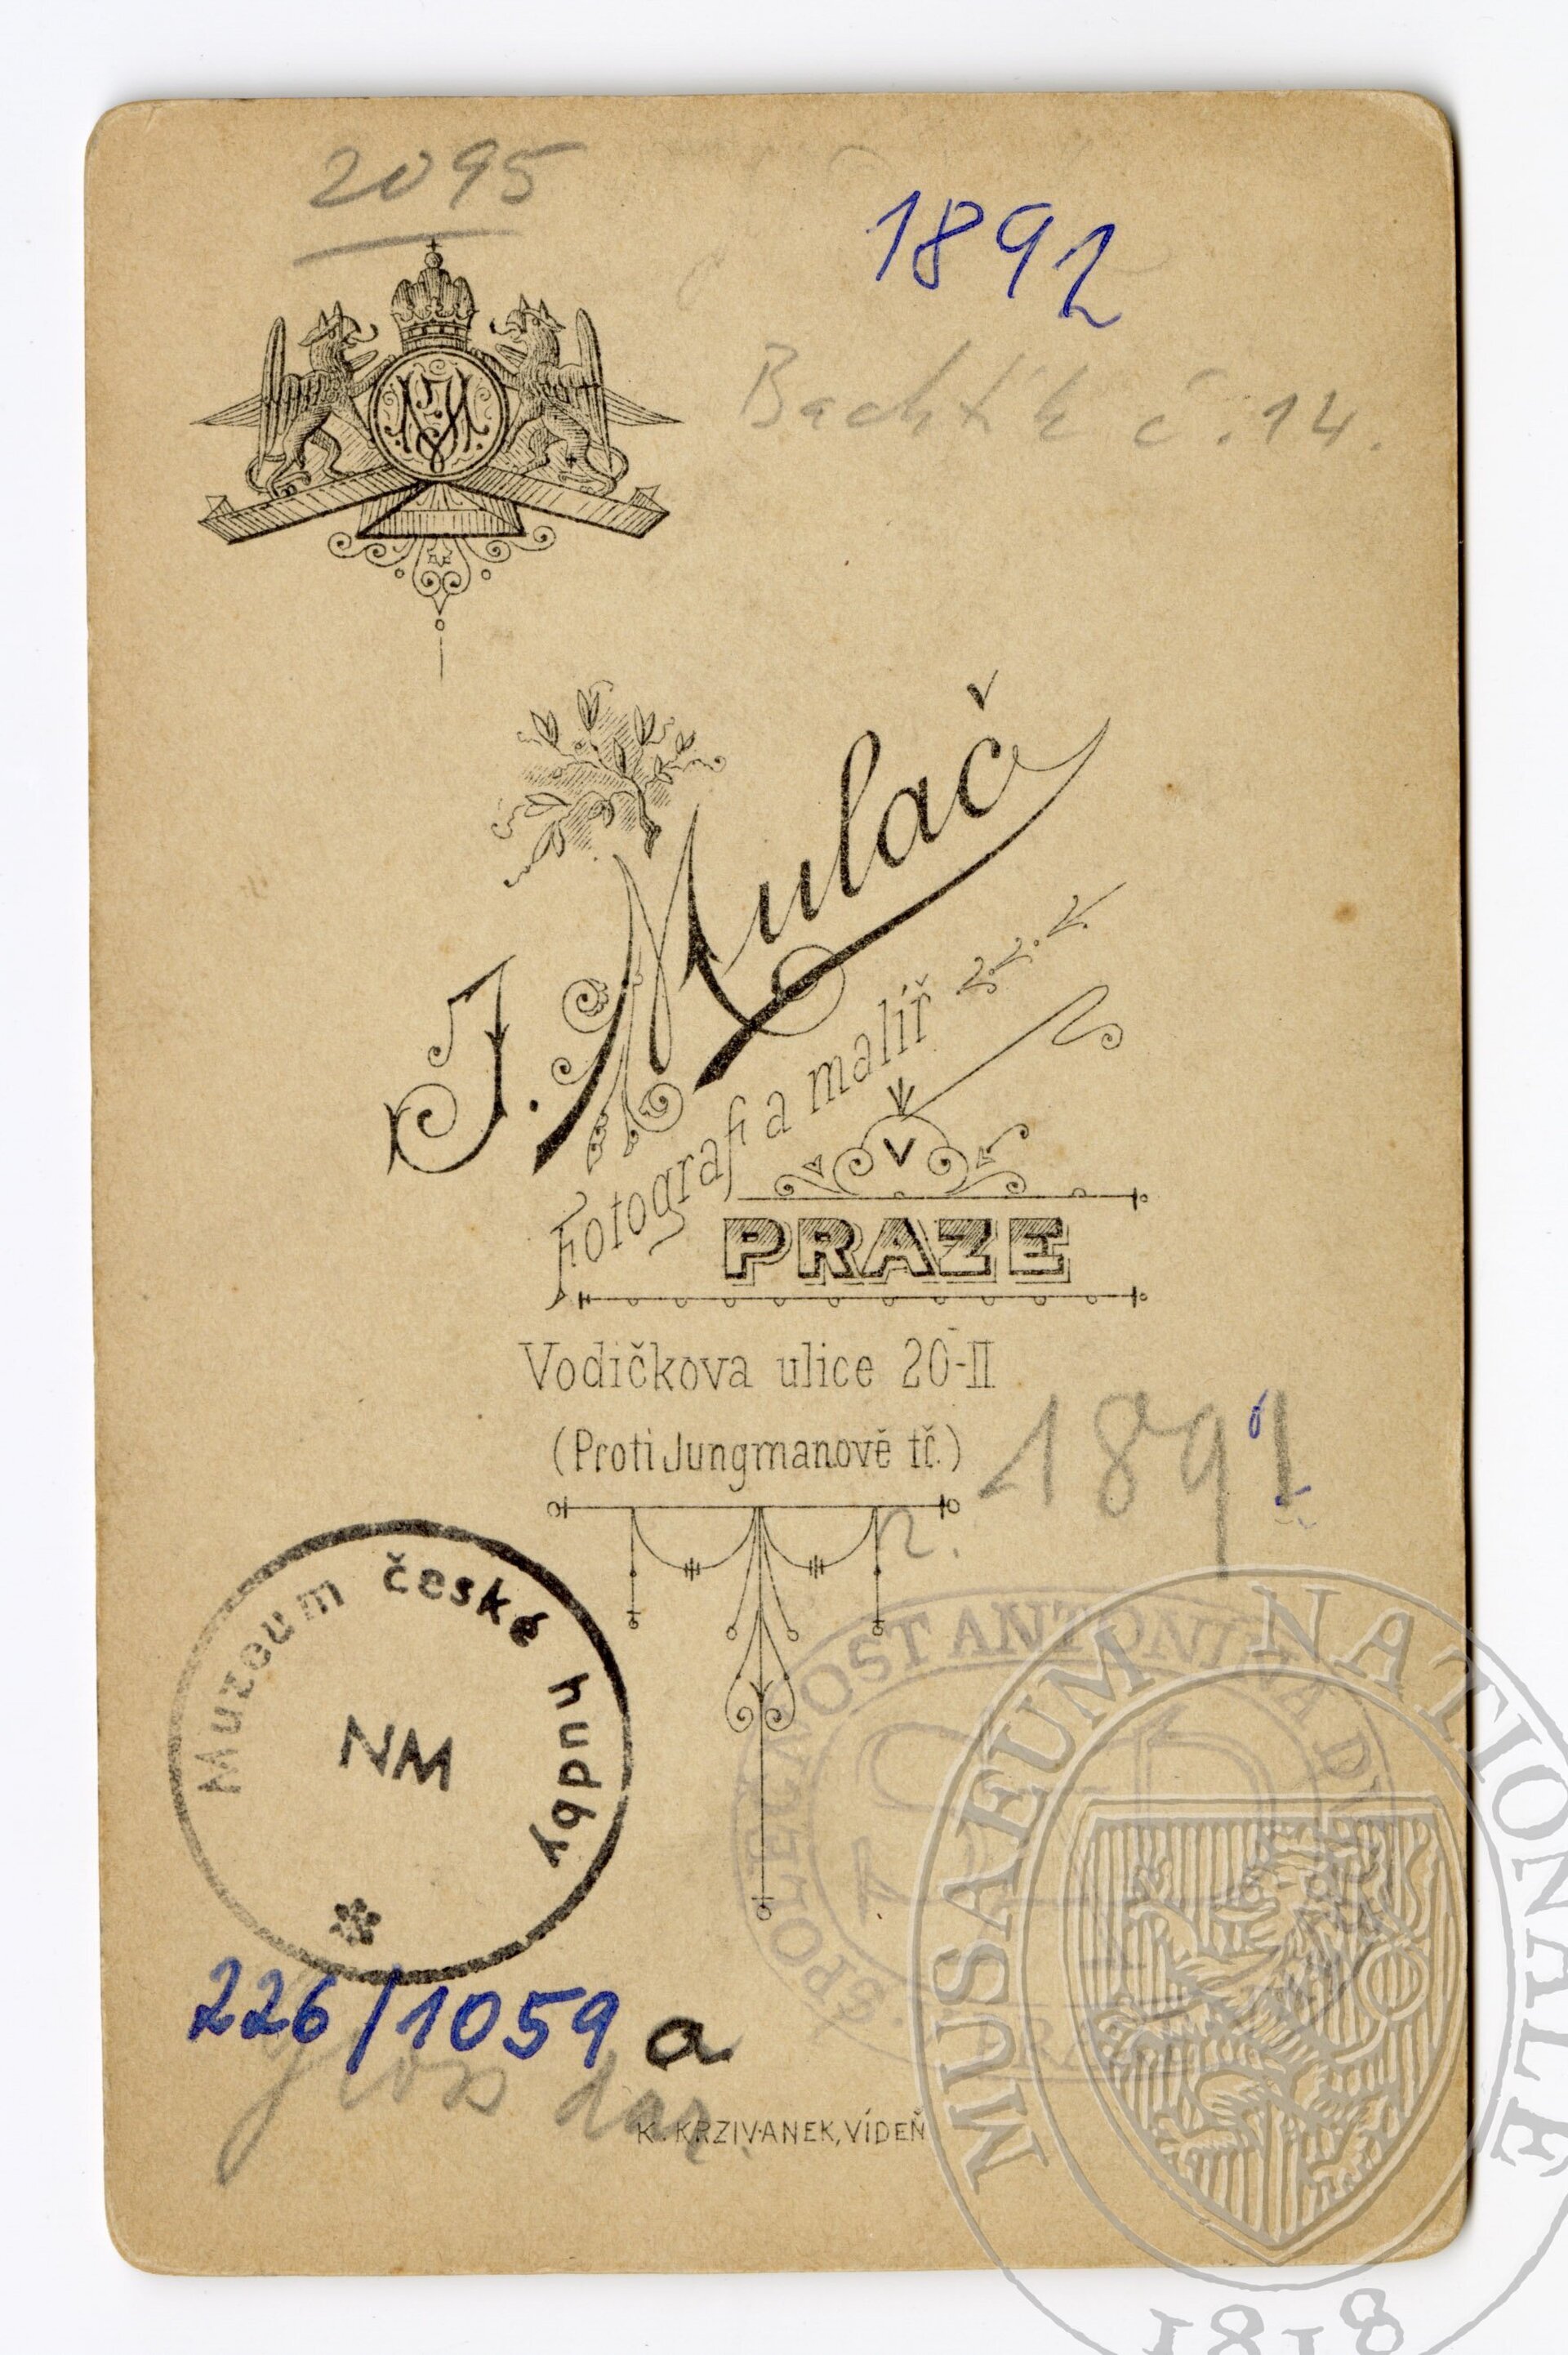 2095
1892
Bachtík č. 14.
J. Mulač
Fotograf a malíř
V
PRAZE
Vodičkova ulice 20-II
(Proti Jungmanově tř.)
r. 1891
Muzeum české hudby
NM
SPOLEČNOST ANTONÍNA DV
PRA
226/1059 a
dar.
K. KRZIVANEK, VÍDEŇ
MUSAEUM NATIONALE
1818